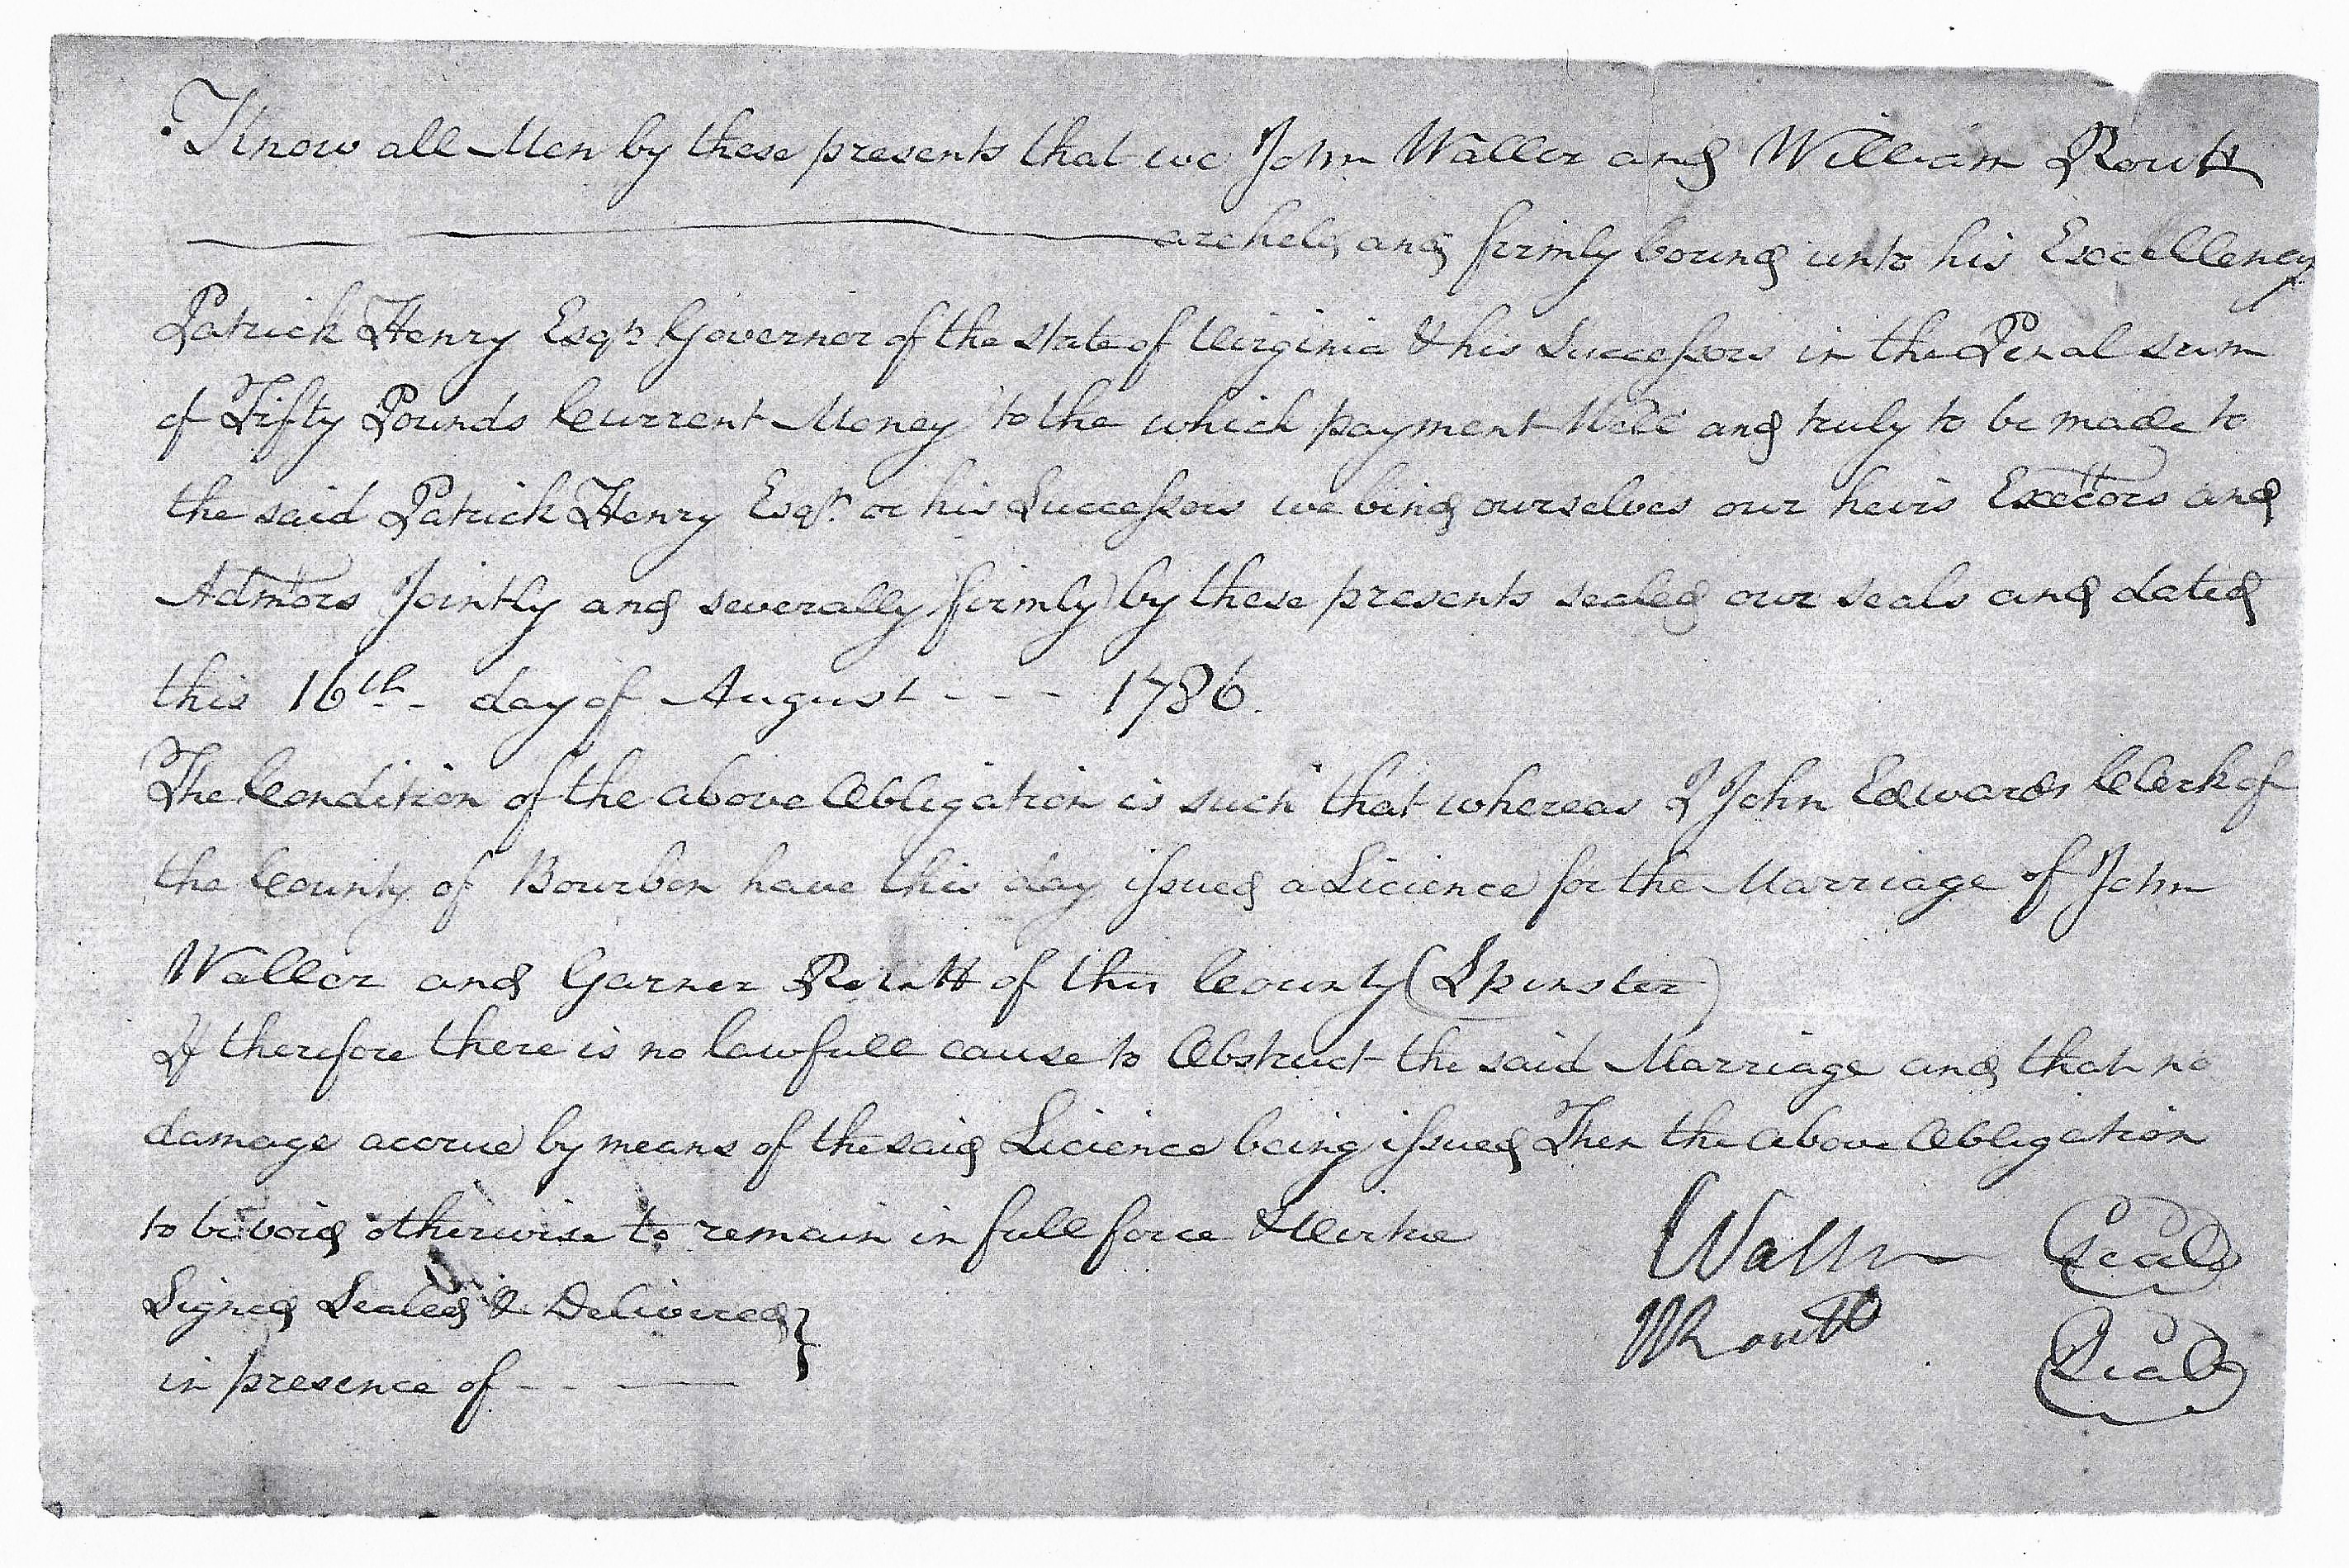 Know all Men by these presents that we John Waller and William Routt
are held and firmly bound unto his Excellency
Patrick Henry Esqr Governor of the state of Virginia & his Successors in the Penal sum
of Fifty Pounds Current Money to the which payment Well and truly to be made to
the said Patrick Henry Esqr. or his Successors we bind ourselves our heirs Exectors and
Admtors Jointly and severally firmly by these presents sealed our seals and dated
this 16th. day of August - - - 1786.
The Condition of the above Obligation is such that whereas I John Edwards Clerk of
the County of Bourbon have this day issued a Licience for the Marriage of John
Waller and Garner Routt of this County (Spinster)
If therefore there is no lawfull cause to Obstruct the said Marriage and that no
damage accrue by means of the said Licience being issued Then the above Obligation
to be void otherwise to remain in full force & Virtue
Waller Seal
Signed Sealed & Delivered }
WRoutt Seal
in presence of - - —